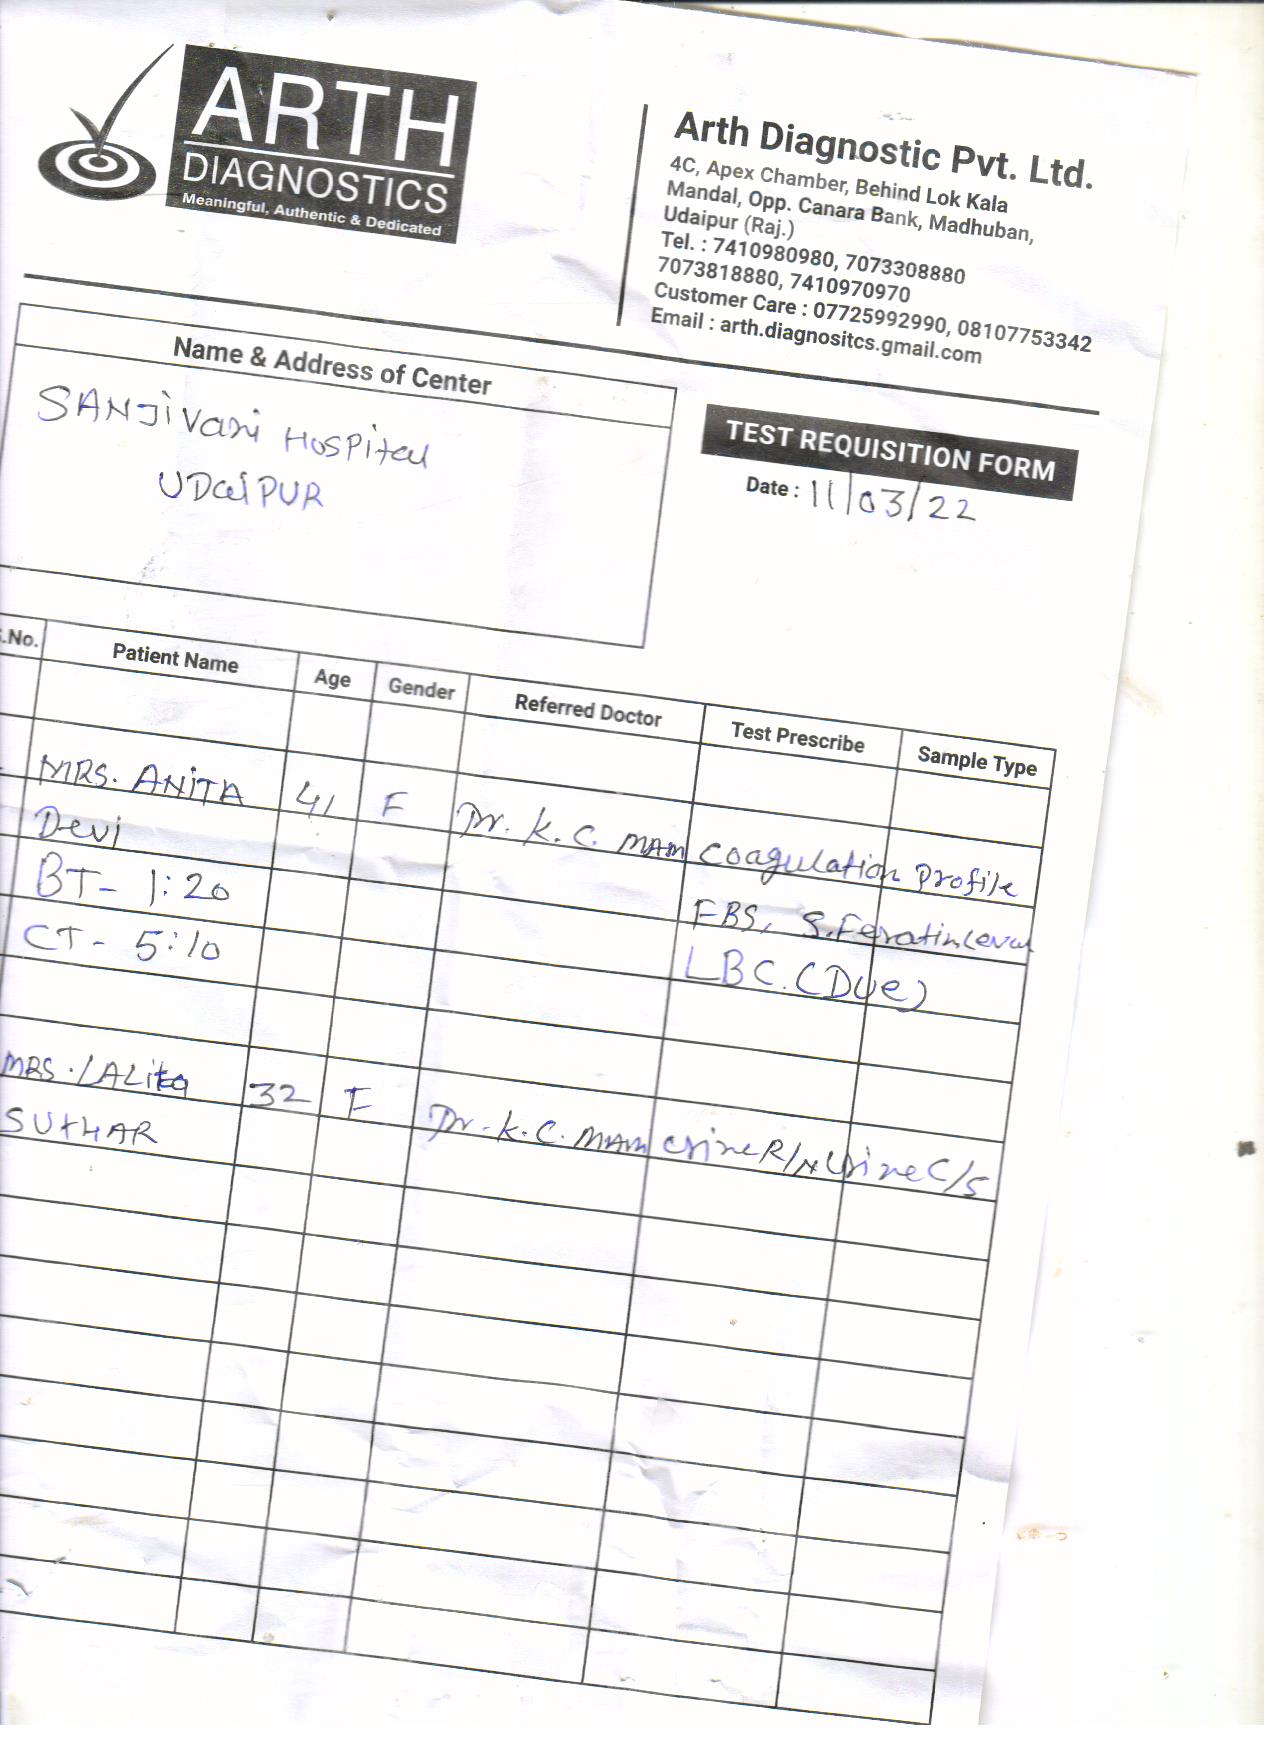 ARTH
DIAGNOSTICS
Meaningful, Authentic & Dedicated
Arth Diagnostic Pvt. Ltd.
4C, Apex Chamber, Behind Lok Kala
Mandal, Opp. Canara Bank, Madhuban,
Udaipur (Raj.)
Tel. : 7410980980, 7073308880
7073818880, 7410970970
Customer Care : 07725992990, 08107753342
Email : arth.diagnositcs.gmail.com
Name & Address of Center
SANJiVani HOSPital
UDaiPUR
TEST REQUISITION FORM
Date : 11/03/22
S.No. Patient Name Age Gender Referred Doctor Test Prescribe Sample Type
MRS. ANiTA 41 F Dr. K.C. MAM Coagulation Profile
Devi FBS, S.Feratin Leval
BT- 1:20 LBC. (Due)
CT- 5:10
MRS. LALita 32 F Dr. K.C. MAM Urine R/M Urine C/S
SUTHAR